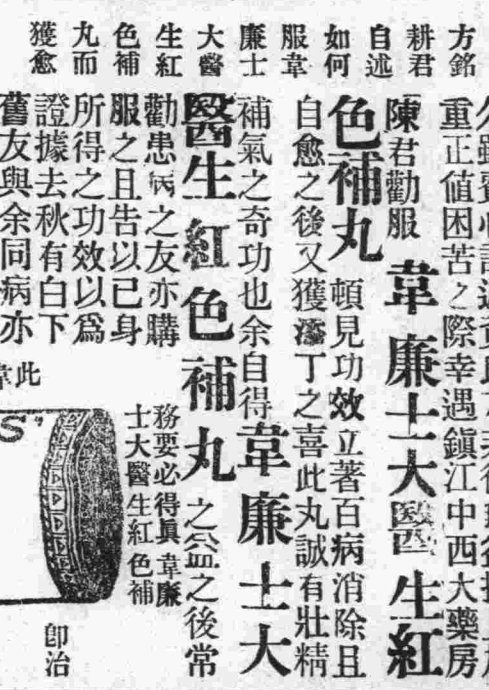 方銘
耕君
自述
如何
服韋
廉士
大醫
生紅
色補
丸而
獲愈
重正值困苦之際幸遇鎮江中西大藥房
陳君勸服韋廉士大醫生紅
色補丸頓見功效立著百病消除且
自愈之後又獲添丁之喜此丸誠有壯精
補氣之奇功也余自得韋廉士大
醫生紅色補丸之益之後常
勸患病之友亦購
服之且告以己身
所得之功效以爲
證據去秋有白下
舊友與余同病亦
務要必得眞韋廉
士大醫生紅色補
此
韋
S"
卽治